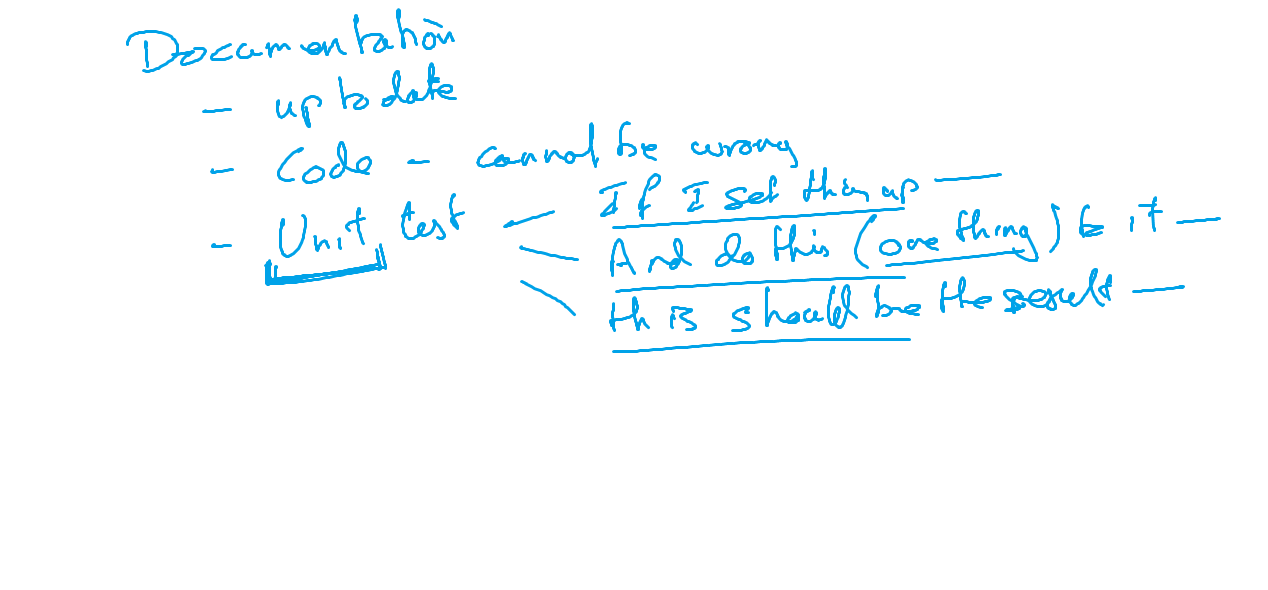 Documentation
- up to date
- Code - cannot be wrong
- Unit test
If I set this up —
And do this (one thing) to it —
this should be the result —